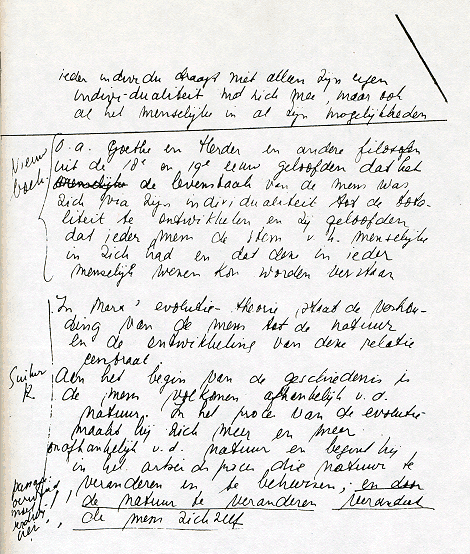 ieder individu draagt niet alleen zijn eigen
individualiteit met zich mee, maar ook
al het menselijke in al zijn mogelijkheden
O.a. Goethe en Herder en andere filosofen
uit de 18e en 19e eeuw geloofden dat het
menselijke de levenstaak van de mens was
zich via zijn individualiteit tot de tota-
liteit te ontwikkelen en zij geloofden
dat ieder mens de stem v.h. menselijke
in zich had en dat deze in ieder
menselijk wezen kon worden verstaan
In Marx' evolutie-theorie staat de verhou-
ding van de mens tot de natuur
en de ontwikkeling van deze relatie
centraal.
Aan het begin van de geschiedenis is
de mens volkomen afhankelijk v.d.
natuur. In het proces van de evolutie
maakt hij zich meer en meer
onafhankelijk v.d. natuur en begint hij
in het arbeidsproces, die natuur te
veranderen en te beheersen; en door
de natuur te veranderen verandert
de mens zichzelf